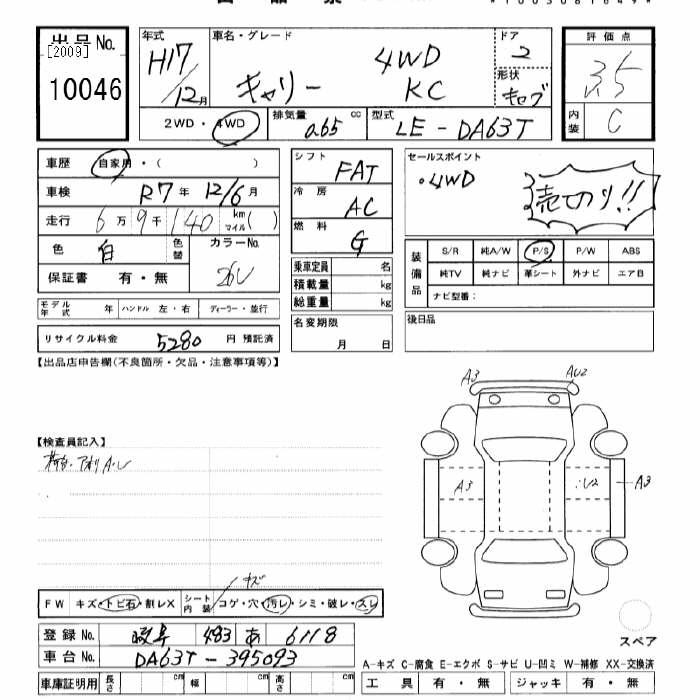 出品No.
[2009]
10046
年式 H17 12月
車名・グレード キャリー 4WD KC
ドア 2
形状 キャブ
評価点 3.5
内装 C
2WD・4WD
排気量 0.65 cc
型式 LE-DA63T
車歴 自家用・( )
車検 R7年 12/6月
走行 6万9千140 km マイル( )
色 白 色替 カラーNo. 26U
保証書 有・無
モデル年式 年 ハンドル 左・右 ディーラー・並行
リサイクル料金 5280 円 預託済
シフト FAT
冷房 AC
燃料 G
乗車定員 名
積載量 kg
総重量 kg
名変期限 月 日
セールスポイント
・4WD
売切り!!
装備品
S/R 純A/W P/S P/W ABS
純TV 純ナビ 革シート 外ナビ エアB
ナビ型番:
後日品
【出品店申告欄(不良箇所・欠品・注意事項等)】
【検査員記入】
荷台・アオリA・U
A3 AU2
A3 U2 A3
キズ
FW キズ・トビ石・割レX シート内装 コゲ・穴・汚レ・シミ・破レ・スレ
登録No. 岐阜 483 あ 6118
車台No. DA63T-395093
車庫証明用 長さ cm 幅 cm 高さ cm
スペア
A-キズ C-腐食 E-エクボ S-サビ U-凹ミ W-補修 XX-交換済
工具 有・無 ジャッキ 有・無